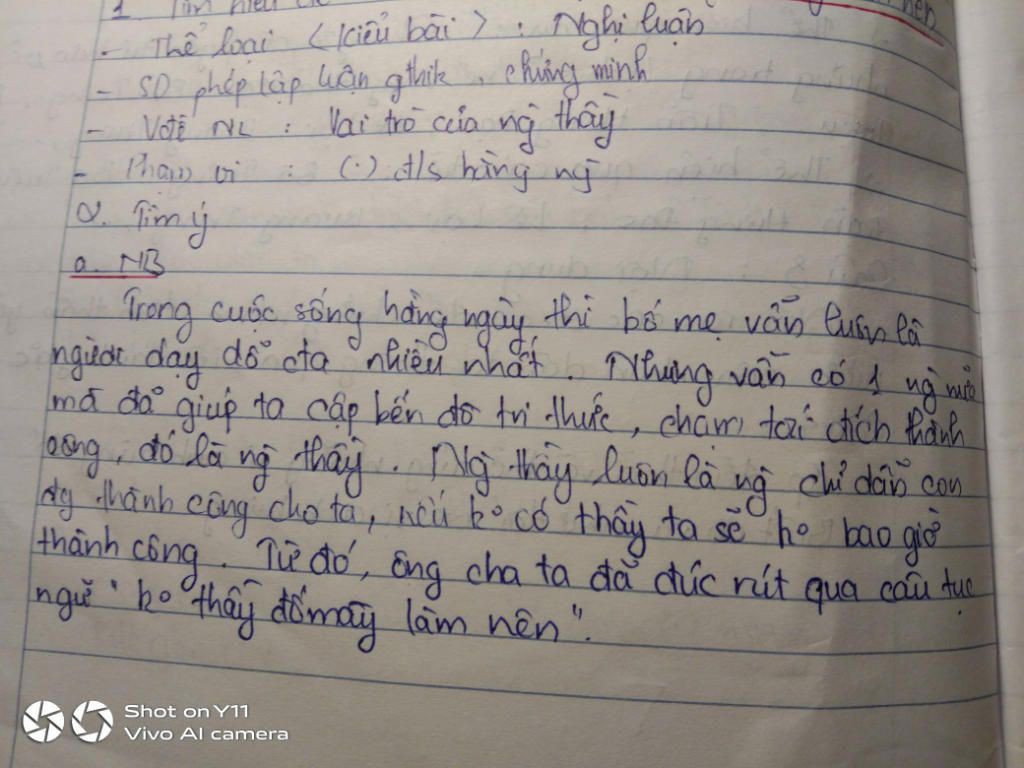 1. Tìm hiểu
nên
- Thể loại (kiểu bài) : Nghị luận
- SD phép lập luận gthik, chứng minh
- Vđề NL : Vai trò của ng thầy
- Phạm vi : (.) đ/s hằng ng
2. Tìm ý
a. MB
Trong cuộc sống hằng ngày thì bố mẹ vẫn luôn là
người dạy dỗ cta nhiều nhất. Nhưng vẫn có 1 ng nữa
mà đã giúp ta cập bến đò tri thức, chạm tới đích thành
công, đó là ng thầy. Ng thầy luôn là ng chỉ dẫn con
đg thành công cho ta, nếu ko có thầy ta sẽ ko bao giờ
thành công. Từ đó, ông cha ta đã đúc rút qua câu tục
ngữ "ko thầy đố mày làm nên".
Shot on Y11
Vivo AI camera